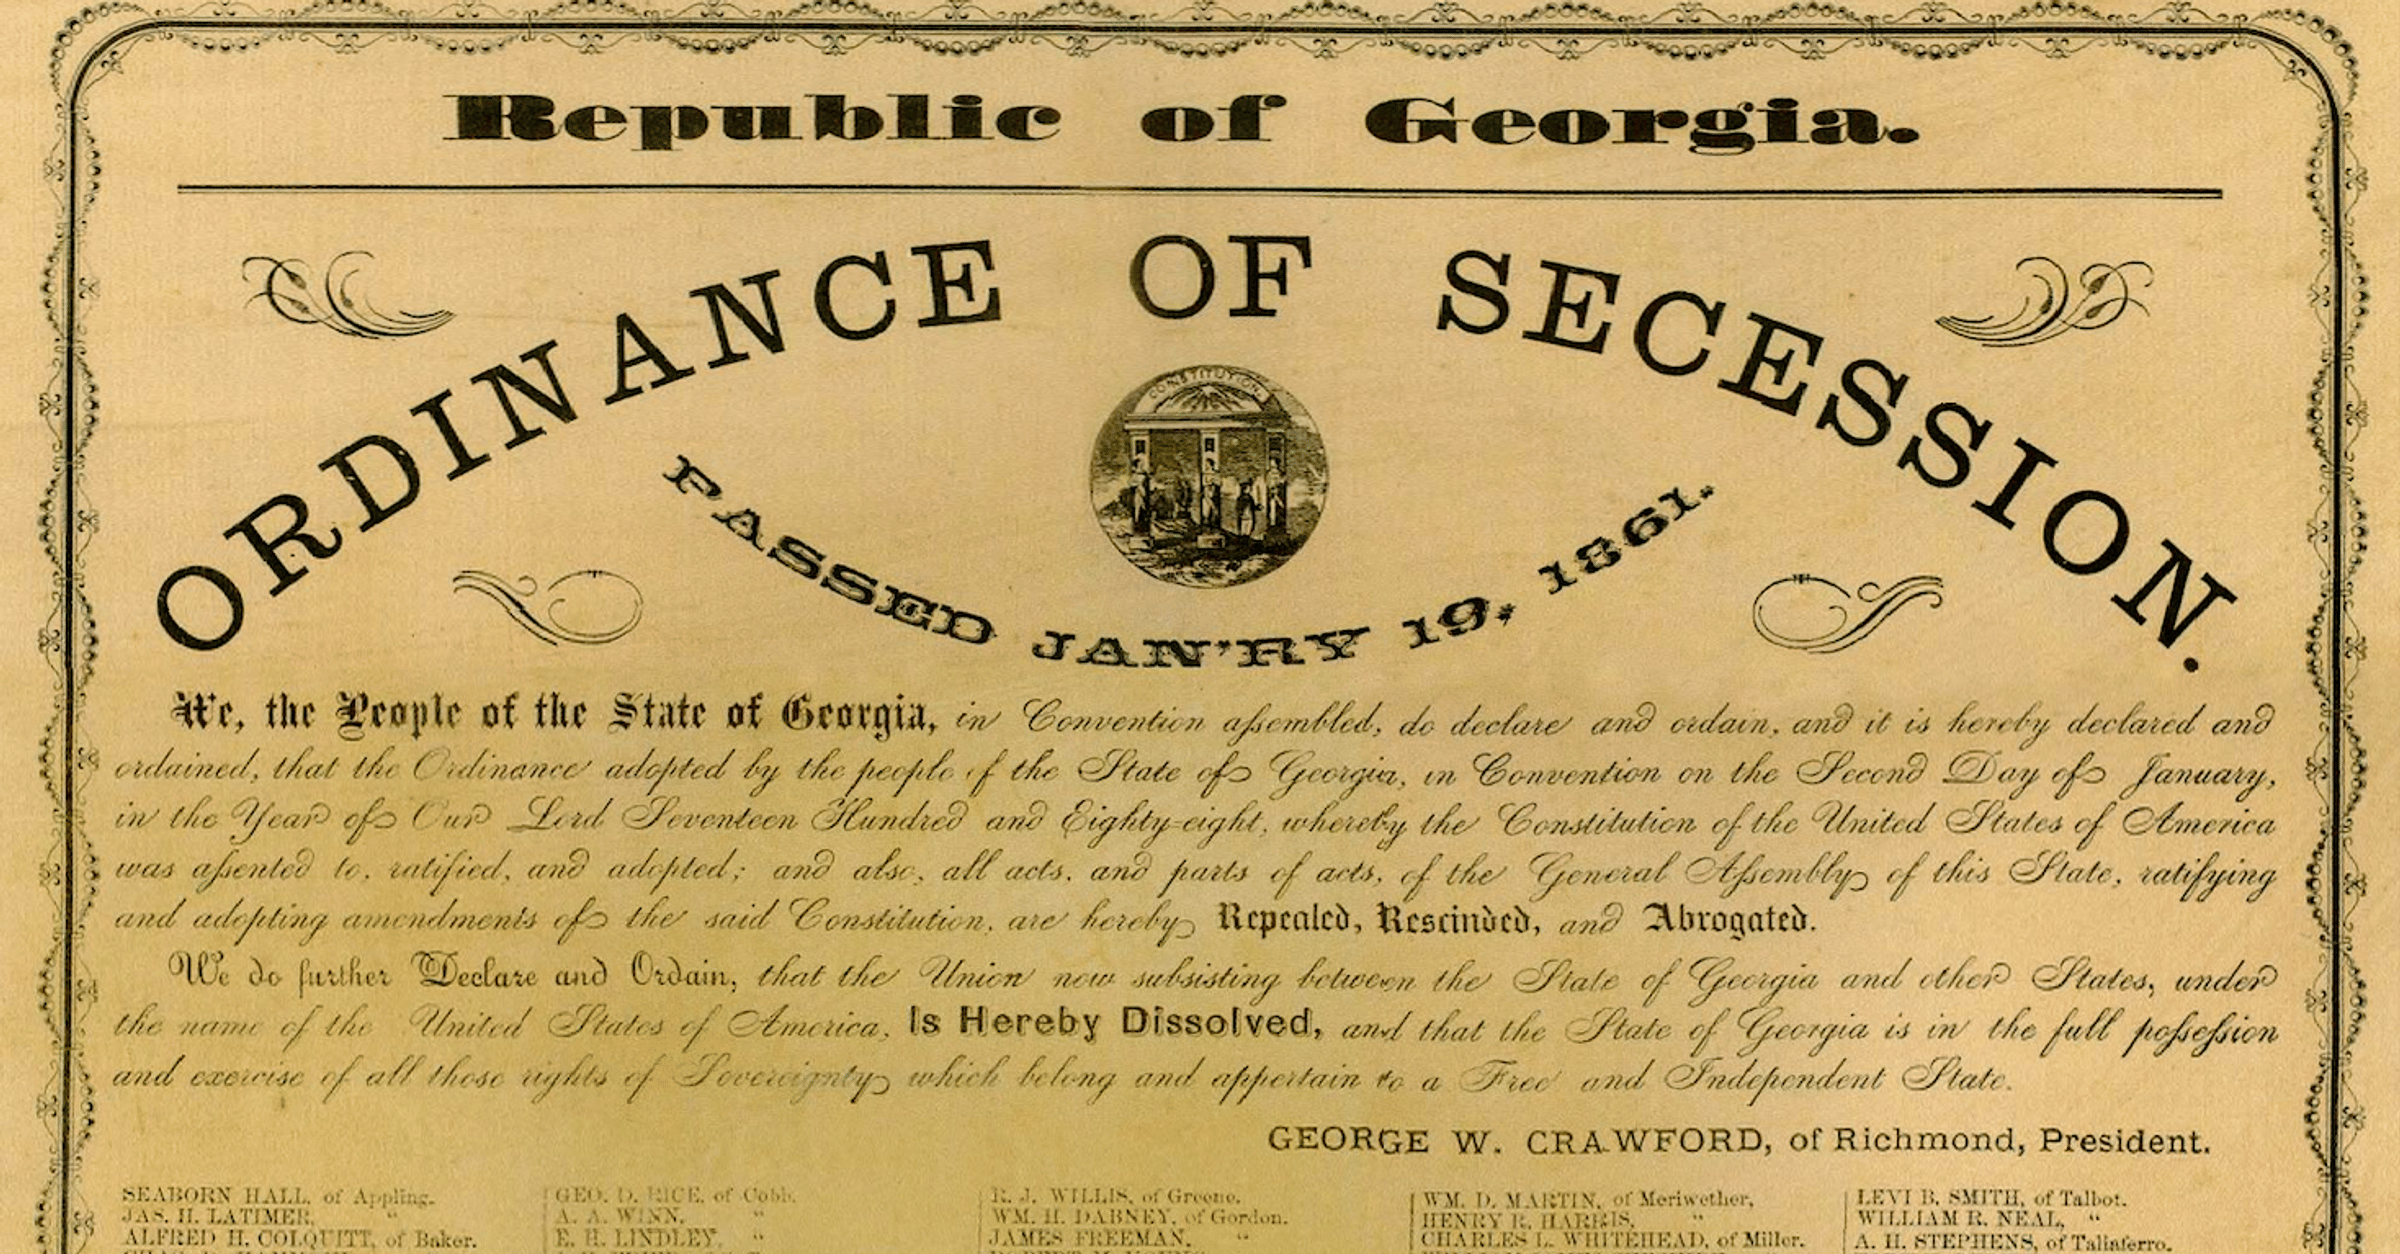 Republic of Georgia.
ORDINANCE OF SECESSION.
CONSTITUTION
PASSED JAN'RY 19, 1861.
We, the People of the State of Georgia, in Convention assembled, do declare and ordain, and it is hereby declared and
ordained, that the Ordinance adopted by the people of the State of Georgia, in Convention on the Second Day of January,
in the Year of Our Lord Seventeen Hundred and Eighty-eight, whereby the Constitution of the United States of America
was assented to, ratified, and adopted; and also, all acts, and parts of acts, of the General Assembly of this State, ratifying
and adopting amendments of the said Constitution, are hereby Repealed, Rescinded, and Abrogated.
We do further Declare and Ordain, that the Union now subsisting between the State of Georgia and other States, under
the name of the United States of America, Is Hereby Dissolved, and that the State of Georgia is in the full possession
and exercise of all those rights of Sovereignty which belong and appertain to a Free and Independent State.
GEORGE W. CRAWFORD, of Richmond, President.
SEABORN HALL, of Appling.
JAS. H. LATIMER, "
ALFRED H. COLQUITT, of Baker.
GEO. D. RICE, of Cobb.
A. A. WINN, "
E. H. LINDLEY, "
R. J. WILLIS, of Greene.
WM. H. DABNEY, of Gordon.
JAMES FREEMAN, "
WM. D. MARTIN, of Meriwether,
HENRY R. HARRIS, "
CHARLES L. WHITEHEAD, of Miller.
LEVI B. SMITH, of Talbot.
WILLIAM R. NEAL, "
A. H. STEPHENS, of Taliaferro.